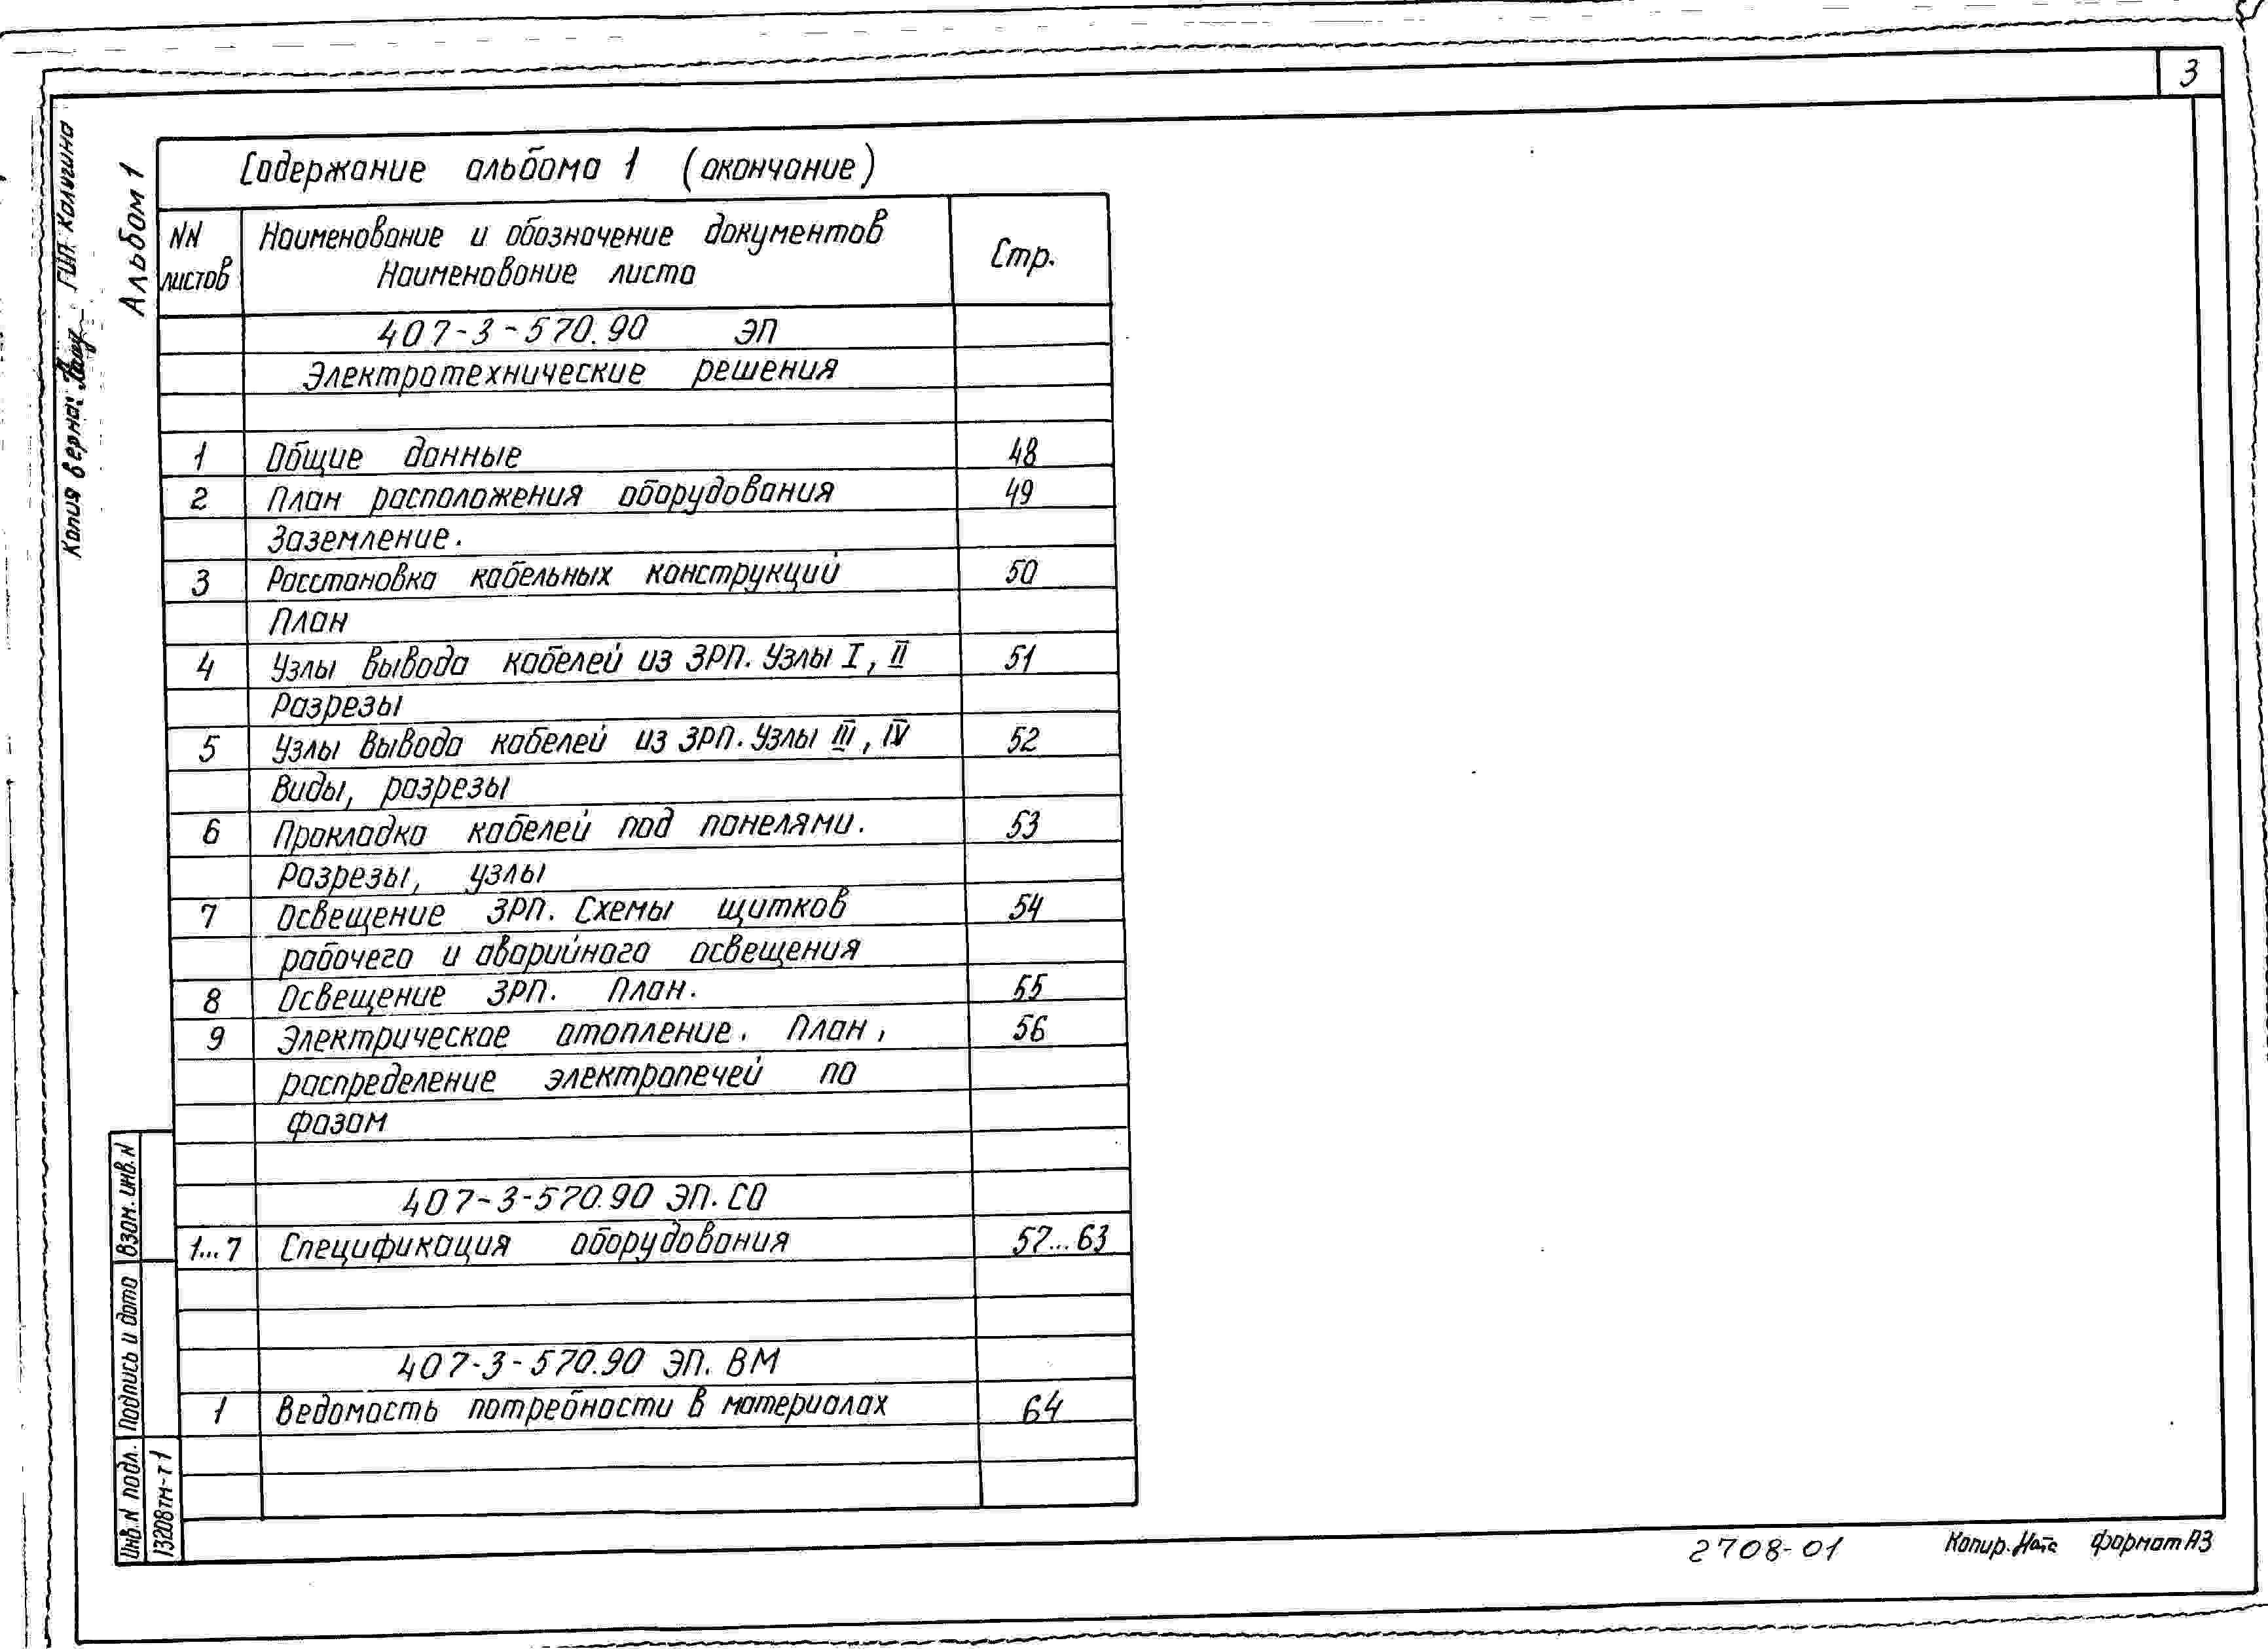 3
Копия верна: ГИП Калугина
Альбом 1
Содержание альбома 1 (окончание)
NN листов
Наименование и обозначение документов
Наименование листа
Стр.
407-3-570.90 ЭП
Электротехнические решения
1 Общие данные 48
2 План расположения оборудования 49
Заземление.
3 Расстановка кабельных конструкций 50
План
4 Узлы вывода кабелей из ЗРП. Узлы I, II 51
Разрезы
5 Узлы вывода кабелей из ЗРП. Узлы III, IV 52
Виды, разрезы
6 Прокладка кабелей под панелями. 53
Разрезы, узлы
7 Освещение ЗРП. Схемы щитков 54
рабочего и аварийного освещения
8 Освещение ЗРП. План. 55
9 Электрическое отопление. План, 56
распределение электропечей по
фазам
407-3-570.90 ЭП. СО
1...7 Спецификация оборудования 57...63
407-3-570.90 ЭП. ВМ
1 Ведомость потребности в материалах 64
Взам. инв. N
Подпись и дата
Инв. N подл.
13208тм-т1
2708-01
Копир. формат А3